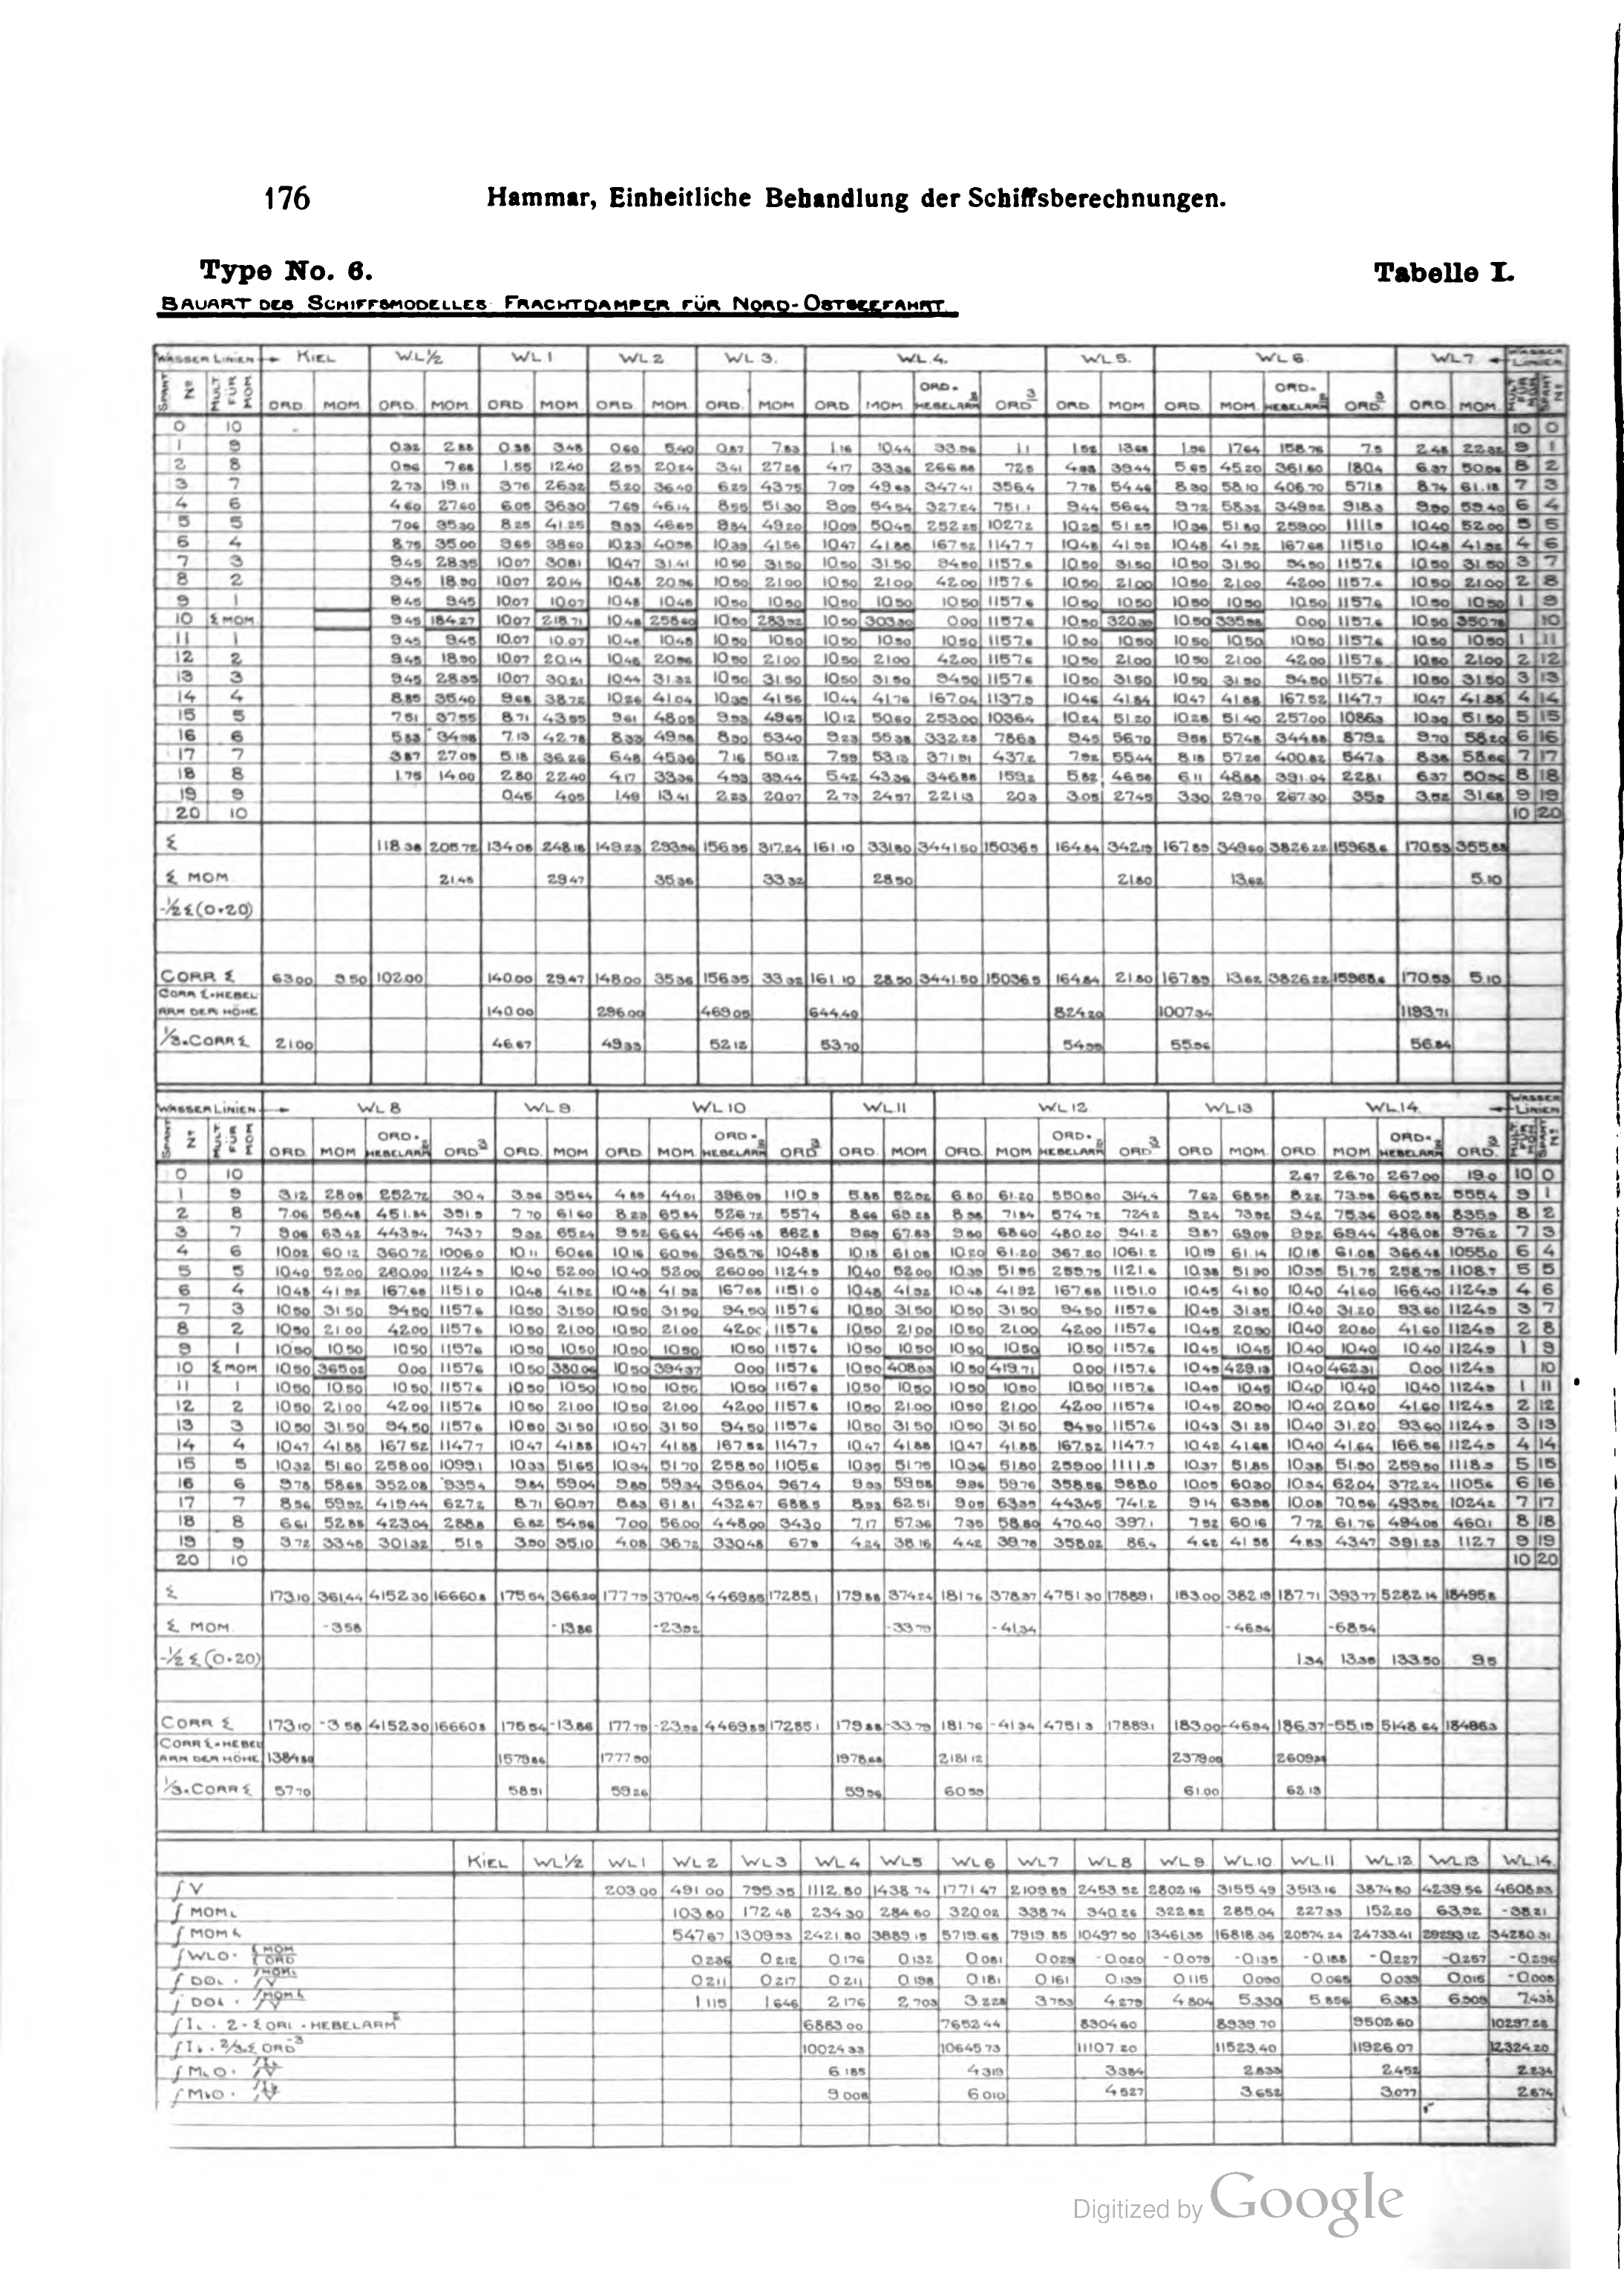 176 Hammar, Einheitliche Behandlung der Schiffsberechnungen.
Type No. 6. Tabelle I.
BAUART DES SCHIFFSMODELLES: FRACHTDAMPER FÜR NORD-OSTSEEFAHRT.
WASSER LINIEN KIEL WL½ WL1 WL2 WL3. WL.4. WL5. WL6. WL7 WASSER LINIEN
SPANT Nº MULT FÜR MOM. ORD MOM ORD. MOM ORD MOM ORD MOM ORD. MOM ORD MOM. ORD·HEBELARM² ORD³ ORD MOM ORD. MOM. ORD·HEBELARM² ORD³ ORD MOM. MULT FÜR MOM SPANT Nº
0 10 10 0
1 9 0.32 2.88 0.38 3.48 0.60 5.40 0.87 7.83 1.16 10.44 93.96 1.1 1.52 13.68 1.96 17.64 158.76 7.5 2.48 22.32 9 1
2 8 0.96 7.68 1.55 12.40 2.53 20.24 3.41 27.28 4.17 33.36 266.88 72.5 4.93 39.44 5.65 45.20 361.60 180.4 6.37 50.96 8 2
3 7 2.73 19.11 3.76 26.32 5.20 36.40 6.25 43.75 7.09 49.63 347.41 356.4 7.78 54.46 8.30 58.10 406.70 571.8 8.74 61.18 7 3
4 6 4.60 27.60 6.05 36.30 7.69 46.14 8.55 51.30 9.09 54.54 327.24 751.1 9.44 56.64 9.72 58.32 349.92 918.3 9.90 59.40 6 4
5 5 7.06 35.30 8.25 41.25 9.33 46.65 9.84 49.20 10.09 50.45 252.25 1027.2 10.25 51.25 10.36 51.80 259.00 1111.9 10.40 52.00 5 5
6 4 8.75 35.00 9.65 38.60 10.23 40.92 10.39 41.56 10.47 41.88 167.52 1147.7 10.48 41.92 10.48 41.92 167.68 1151.0 10.48 41.92 4 6
7 3 9.45 28.35 10.07 30.81 10.47 31.41 10.50 31.50 10.50 31.50 94.50 1157.6 10.50 31.50 10.50 31.50 94.50 1157.6 10.50 31.50 3 7
8 2 9.45 18.90 10.07 20.14 10.48 20.96 10.50 21.00 10.50 21.00 42.00 1157.6 10.50 21.00 10.50 21.00 42.00 1157.6 10.50 21.00 2 8
9 1 9.45 9.45 10.07 10.07 10.48 10.48 10.50 10.50 10.50 10.50 10.50 1157.6 10.50 10.50 10.50 10.50 10.50 1157.6 10.50 10.50 1 9
10 Σ MOM 9.45 184.27 10.07 218.71 10.48 258.60 10.50 283.92 10.50 303.30 0.00 1157.6 10.50 320.39 10.50 335.98 0.00 1157.6 10.50 350.78 10
11 1 9.45 9.45 10.07 10.07 10.48 10.48 10.50 10.50 10.50 10.50 10.50 1157.6 10.50 10.50 10.50 10.50 10.50 1157.6 10.50 10.50 1 11
12 2 9.45 18.90 10.07 20.14 10.48 20.96 10.50 21.00 10.50 21.00 42.00 1157.6 10.50 21.00 10.50 21.00 42.00 1157.6 10.50 21.00 2 12
13 3 9.45 28.35 10.07 30.21 10.44 31.32 10.50 31.50 10.50 31.50 94.50 1157.6 10.50 31.50 10.50 31.50 94.50 1157.6 10.50 31.50 3 13
14 4 8.85 35.40 9.68 38.72 10.26 41.04 10.39 41.56 10.44 41.76 167.04 1137.9 10.46 41.84 10.47 41.88 167.52 1147.7 10.47 41.88 4 14
15 5 7.51 37.55 8.71 43.55 9.61 48.05 9.93 49.65 10.12 50.60 253.00 1036.4 10.24 51.20 10.28 51.40 257.00 1086.3 10.30 51.50 5 15
16 6 5.83 34.98 7.13 42.78 8.33 49.98 8.90 53.40 9.23 55.38 332.28 786.3 9.45 56.70 9.58 57.48 344.88 879.2 9.70 58.20 6 16
17 7 3.87 27.09 5.18 36.26 6.48 45.36 7.16 50.12 7.59 53.13 371.91 437.2 7.92 55.44 8.18 57.26 400.82 547.3 8.38 58.66 7 17
18 8 1.75 14.00 2.80 22.40 4.17 33.36 4.93 39.44 5.42 43.36 346.88 159.2 5.82 46.56 6.11 48.88 391.04 228.1 6.37 50.96 8 18
19 9 0.45 4.05 1.49 13.41 2.23 20.07 2.73 24.57 221.13 20.3 3.05 27.45 3.30 29.70 267.30 35.9 3.52 31.68 9 19
20 10 10 20
Σ 118.38 205.72 134.08 248.18 149.23 293.96 156.35 317.24 161.10 331.80 3441.50 15036.5 164.84 342.19 167.89 349.60 3826.22 15968.6 170.53 355.88
Σ MOM 21.45 29.47 35.36 33.32 28.50 21.80 13.62 5.10
-½Σ(0+20)
CORR Σ 63.00 9.50 102.00 140.00 29.47 148.00 35.36 156.35 33.32 161.10 28.50 3441.50 15036.5 164.84 21.80 167.89 13.62 3826.22 15968.6 170.53 5.10
CORR Σ·HEBELARM DER HÖHE 140.00 296.00 469.05 644.40 824.20 1007.34 1193.71
⅓·CORR Σ 21.00 46.67 49.33 52.12 53.70 54.95 55.96 56.84
WASSER LINIEN WL8 WL9. WL10 WL11 WL12. WL13 WL.14. WASSER LINIEN
SPANT Nº MULT. FÜR MOM ORD. MOM ORD·HEBELARM² ORD³ ORD. MOM ORD. MOM. ORD·HEBELARM² ORD³ ORD. MOM ORD. MOM ORD·HEBELARM² ORD³ ORD MOM. ORD. MOM ORD·HEBELARM² ORD³ MULT FÜR MOM SPANT Nº
0 10 2.67 26.70 267.00 19.0 10 0
1 9 3.12 28.08 252.72 30.4 3.96 35.64 4.89 44.01 396.09 110.9 5.88 52.92 6.80 61.20 550.80 314.4 7.62 68.58 8.22 73.98 665.82 555.4 9 1
2 8 7.06 56.48 451.84 351.9 7.70 61.60 8.23 65.84 526.72 557.4 8.66 69.28 8.98 71.84 574.72 724.2 9.24 73.92 9.42 75.36 602.88 835.9 8 2
3 7 9.06 63.42 443.94 743.7 9.32 65.24 9.52 66.64 466.48 862.8 9.69 67.83 9.80 68.60 480.20 941.2 9.87 69.09 9.92 69.44 486.08 976.2 7 3
4 6 10.02 60.12 360.72 1006.0 10.11 60.66 10.16 60.96 365.76 1048.8 10.18 61.08 10.20 61.20 367.20 1061.2 10.19 61.14 10.18 61.08 366.48 1055.0 6 4
5 5 10.40 52.00 260.00 1124.9 10.40 52.00 10.40 52.00 260.00 1124.9 10.40 52.00 10.39 51.95 259.75 1121.6 10.38 51.90 10.35 51.75 258.75 1108.7 5 5
6 4 10.48 41.92 167.68 1151.0 10.48 41.92 10.48 41.92 167.68 1151.0 10.48 41.92 10.48 41.92 167.68 1151.0 10.45 41.80 10.40 41.60 166.40 1124.9 4 6
7 3 10.50 31.50 94.50 1157.6 10.50 31.50 10.50 31.50 94.50 1157.6 10.50 31.50 10.50 31.50 94.50 1157.6 10.45 31.35 10.40 31.20 93.60 1124.9 3 7
8 2 10.50 21.00 42.00 1157.6 10.50 21.00 10.50 21.00 42.00 1157.6 10.50 21.00 10.50 21.00 42.00 1157.6 10.45 20.90 10.40 20.80 41.60 1124.9 2 8
9 1 10.50 10.50 10.50 1157.6 10.50 10.50 10.50 10.50 10.50 1157.6 10.50 10.50 10.50 10.50 10.50 1157.6 10.45 10.45 10.40 10.40 10.40 1124.9 1 9
10 Σ MOM 10.50 365.02 0.00 1157.6 10.50 380.06 10.50 394.37 0.00 1157.6 10.50 408.03 10.50 419.71 0.00 1157.6 10.45 429.13 10.40 462.31 0.00 1124.9 10
11 1 10.50 10.50 10.50 1157.6 10.50 10.50 10.50 10.50 10.50 1157.6 10.50 10.50 10.50 10.50 10.50 1157.6 10.45 10.45 10.40 10.40 10.40 1124.9 1 11
12 2 10.50 21.00 42.00 1157.6 10.50 21.00 10.50 21.00 42.00 1157.6 10.50 21.00 10.50 21.00 42.00 1157.6 10.45 20.90 10.40 20.80 41.60 1124.9 2 12
13 3 10.50 31.50 94.50 1157.6 10.50 31.50 10.50 31.50 94.50 1157.6 10.50 31.50 10.50 31.50 94.50 1157.6 10.43 31.29 10.40 31.20 93.60 1124.9 3 13
14 4 10.47 41.88 167.52 1147.7 10.47 41.88 10.47 41.88 167.52 1147.7 10.47 41.88 10.47 41.88 167.52 1147.7 10.42 41.68 10.40 41.64 166.56 1124.9 4 14
15 5 10.32 51.60 258.00 1099.1 10.33 51.65 10.34 51.70 258.50 1105.6 10.35 51.75 10.36 51.80 259.00 1111.9 10.37 51.85 10.38 51.90 259.50 1118.3 5 15
16 6 9.78 58.68 352.08 935.4 9.84 59.04 9.89 59.34 356.04 967.4 9.93 59.58 9.96 59.76 358.56 988.0 10.05 60.30 10.34 62.04 372.24 1105.6 6 16
17 7 8.56 59.92 419.44 627.2 8.71 60.97 8.83 61.81 432.67 688.5 8.93 62.51 9.05 63.35 443.45 741.2 9.14 63.98 10.08 70.56 493.92 1024.2 7 17
18 8 6.61 52.88 423.04 288.8 6.82 54.56 7.00 56.00 448.00 343.0 7.17 57.36 7.35 58.80 470.40 397.1 7.52 60.16 7.72 61.76 494.08 460.1 8 18
19 9 3.72 33.48 301.32 51.5 3.90 35.10 4.08 36.72 330.48 67.9 4.24 38.16 4.42 39.78 358.02 86.4 4.62 41.58 4.83 43.47 391.23 112.7 9 19
20 10 10 20
Σ 173.10 361.44 4152.30 16660.8 175.54 366.20 177.79 370.45 4469.85 17285.1 179.88 374.24 181.76 378.37 4751.30 17889.1 183.00 382.19 187.71 393.77 5282.14 18495.8
Σ MOM -3.58 -13.86 -23.92 -33.79 -41.34 -46.94 -68.54
-½Σ(0+20) 1.34 13.35 133.50 9.5
CORR Σ 173.10 -3.58 4152.30 16660.8 175.54 -13.86 177.79 -23.92 4469.85 17285.1 179.88 -33.79 181.76 -41.34 4751.3 17889.1 183.00 -46.94 186.37 -55.19 5148.64 18486.3
CORR Σ·HEBELARM DER HÖHE 1384.80 1579.86 1777.90 1978.68 2181.12 2379.00 2609.
⅓·CORR Σ 57.70 58.51 59.26 59.96 60.59 61.00 62.13
KIEL WL½ WL1 WL2 WL3 WL4 WL5 WL6 WL7 WL8 WL9 WL10 WL11. WL12 WL13 WL14
∫V 203.00 491.00 795.35 1112.80 1438.74 1771.47 2109.89 2453.52 2802.16 3155.49 3513.16 3874.80 4239.56 4608.93
∫MOM L 103.80 172.48 234.30 284.60 320.02 338.74 340.26 322.82 285.04 227.33 152.20 63.92 -38.21
∫MOM h 547.67 1309.93 2421.80 3889.15 5719.68 7919.85 10497.50 13461.35 16818.36 20574.24 24733.41 29293.12 34280.31
∫WLO· ΣMOM/ΣORD 0.236 0.212 0.176 0.132 0.081 0.029 -0.020 -0.079 -0.135 -0.188 -0.227 -0.257 -0.296
∫DOL· ∫MOM L/V 0.211 0.217 0.211 0.198 0.181 0.161 0.139 0.115 0.090 0.065 0.039 0.015 -0.008
∫DOh· ∫MOM h/V 1.115 1.646 2.176 2.703 3.228 3.753 4.279 4.804 5.330 5.856 6.383 6.909 7.438
∫IL·2·ΣORD·HEBELARM² 6883.00 7652.44 8304.60 8939.70 9502.60 10297.28
∫Ib·⅔·ΣORD³ 10024.33 10645.73 11107.20 11523.40 11926.07 12324.20
∫MLO· 6.185 4.319 3.384 2.833 2.452 2.234
∫MbO· 9.008 6.010 4.527 3.652 3.077 2.674
Digitized by Google